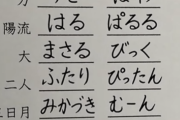 陽流 はる ぱるる
大 まさる びっく
二人 ふたり ぴったん
三日月 みかづき むーん